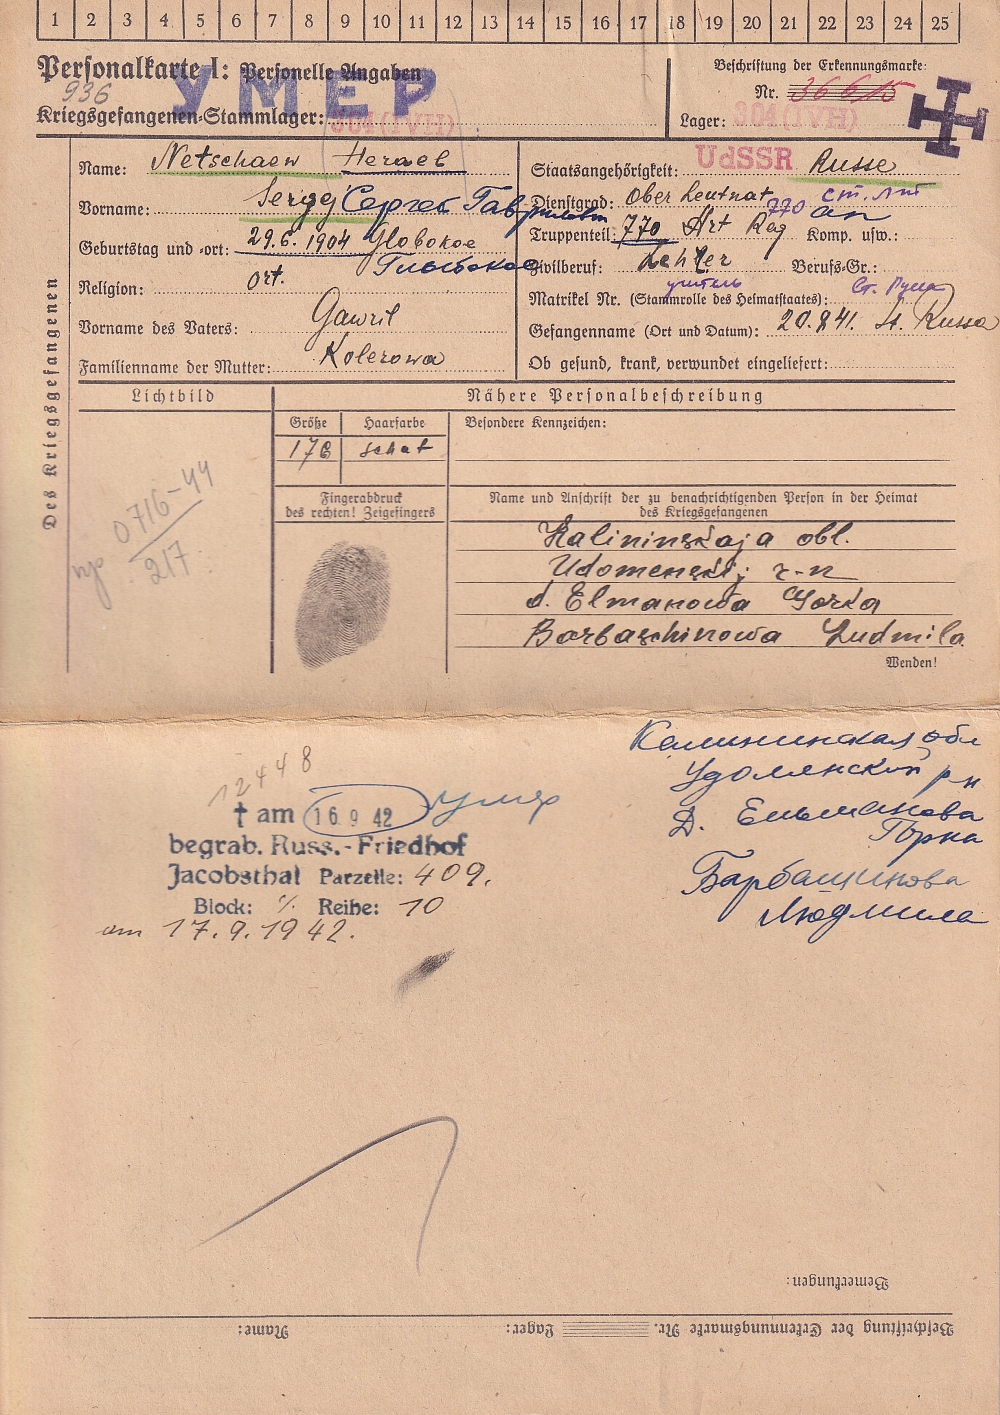 1 2 3 4 5 6 7 8 9 10 11 12 13 14 15 16 17 18 19 20 21 22 23 24 25
Personalkarte I: Personelle Angaben
УМЕР
936
Kriegsgefangenen-Stammlager: 304 (IV H)
Beschriftung der Erkennungsmarke:
Nr. 36615
Lager: 304 (IV H)
Des Kriegsgefangenen
Name: Netschaew Нечаев
Vorname: Sergej Сергей Гаврилович
Geburtstag und -ort: 29.6.1904 Glovokoe
Глыбокое
Religion: Ort.
Vorname des Vaters: Gawril
Familienname der Mutter: Kolerowa
Staatsangehörigkeit: UdSSR Russe
Dienstgrad: Ober Leutnat ст. лт
770 ап
Truppenteil: 770 Art Reg Komp. usw.:
Zivilberuf: Lehrer Berufs-Gr.:
учитель Ст. Русса
Matrikel Nr. (Stammrolle des Heimatstaates):
Gefangenname (Ort und Datum): 20.8 41. St. Russa
Ob gesund, krank, verwundet eingeliefert:
Lichtbild
Nähere Personalbeschreibung
Größe Haarfarbe Besondere Kennzeichen:
176 schat
Fingerabdruck
des rechten! Zeigefingers
Name und Anschrift der zu benachrichtigenden Person in der Heimat
des Kriegsgefangenen
0716-44
217
Kalininskaja obl.
Udomenskij r-n
d. Elmanowa Gorka
Barbaschinowa Ludmila
Wenden!
Калининская обл
Удомлянский р н
Д. Ельманова
Горка
Барбашинова
Людмила
12448
† am 16.9.42 умер
begrab. Russ.-Friedhof
Jacobsthal Parzelle: 409.
Block: ./. Reihe: 10
am 17.9.1942.
Bemerkungen:
Beschriftung der Erkennungsmarke Nr. Lager: Name: